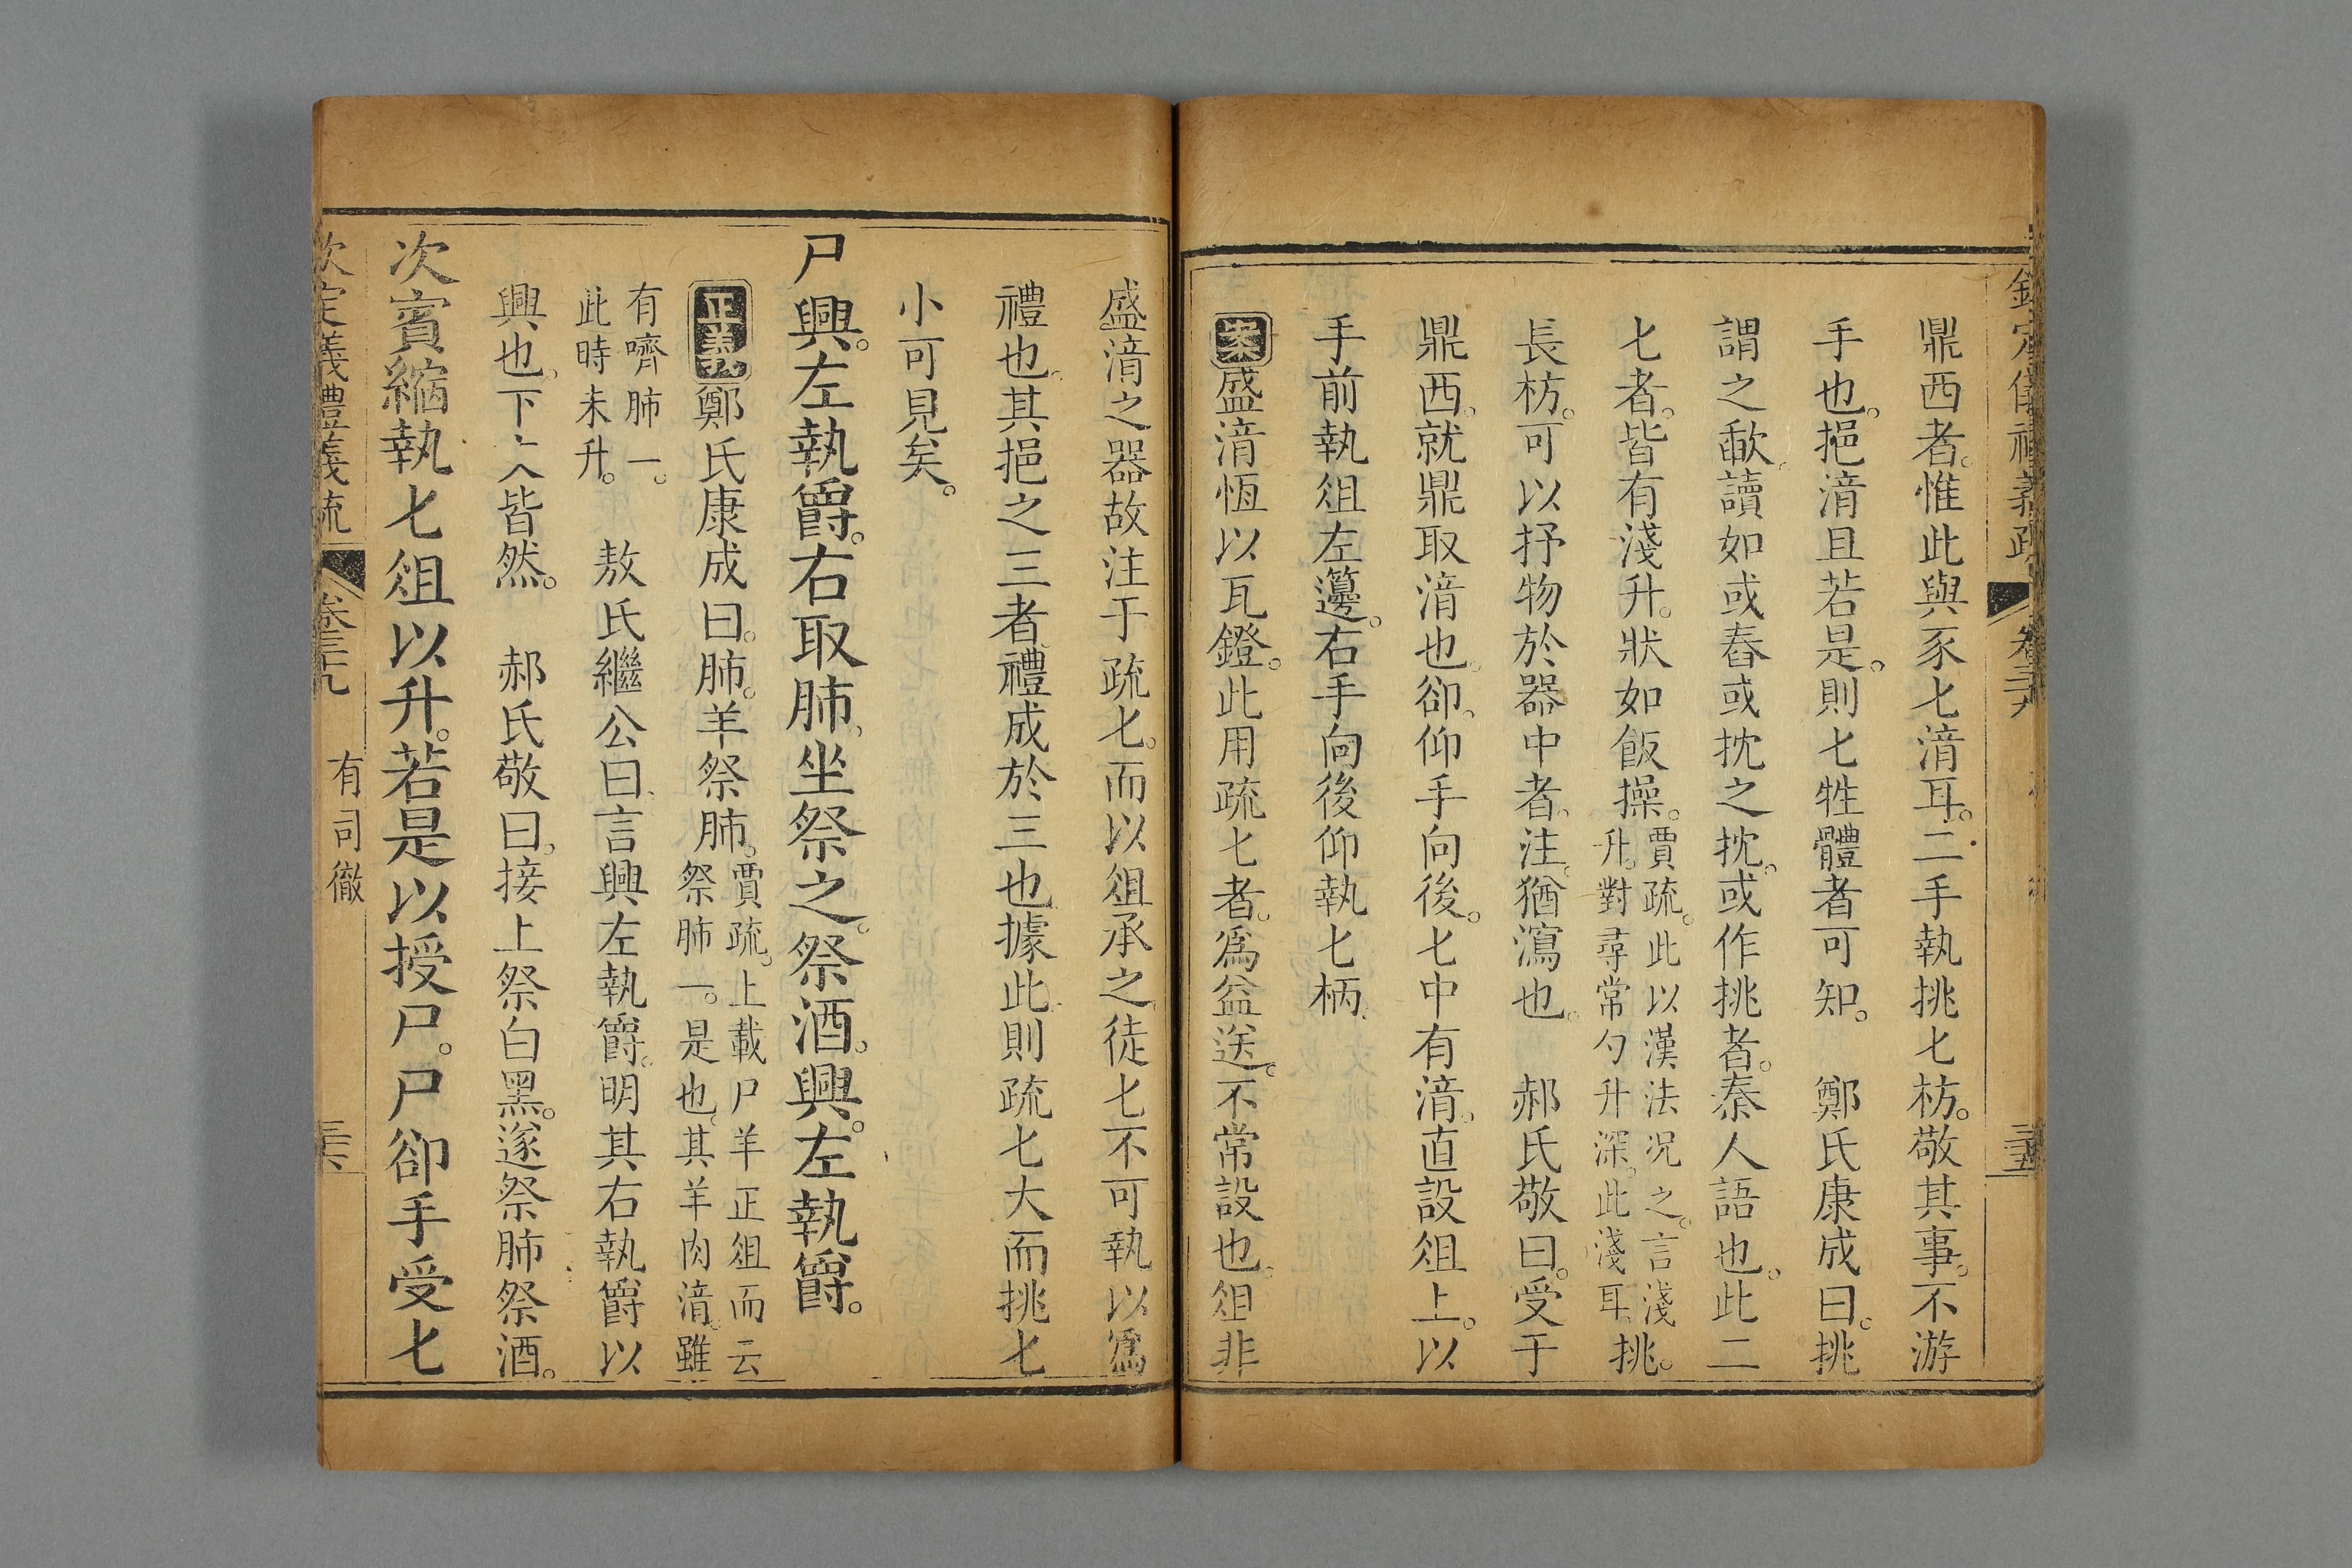 鼎西者。惟此與豕匕湇耳。二手執挑匕枋。敬其事。不游
手也。挹湇且若是。則匕牲體者可知。　鄭氏康成曰。挑
謂之歃。讀如或舂或抌之抌。或作挑者。秦人語也。此二
匕者。皆有淺升。狀如飯操。賈疏。此以漢法況之。言淺升。對尋常勺升深。此淺耳。挑。
長枋。可以抒物於器中者。注。猶瀉也。　郝氏敬曰。受于
鼎西。就鼎取湇也。卻。仰手向後。匕中有湇。直設俎上。以
手前執俎左籩。右手向後仰執匕柄。
案盛湇恆以瓦鐙。此用疏匕者。爲益送。不常設也。俎非
盛湇之器故注于疏匕。而以俎承之徒匕不可執以爲
禮也。其挹之三者禮成於三也據此則疏匕大而挑匕
小可見矣。
尸興。左執爵。右取肺。坐祭之。祭酒。興。左執爵。
正義鄭氏康成曰。肺。羊祭肺。賈疏。上載尸羊正俎而云祭肺一。是也。其羊肉湇。雖
有嚌肺一。此時未升。　敖氏繼公曰。言興左執爵。明其右執爵以
興也。下文皆然。　郝氏敬曰。接上祭白黑。遂祭肺祭酒。
次賓縮執匕俎以升。若是以授尸。尸卻手受匕
欽定儀禮義疏　卷三十九　有司徹　三六